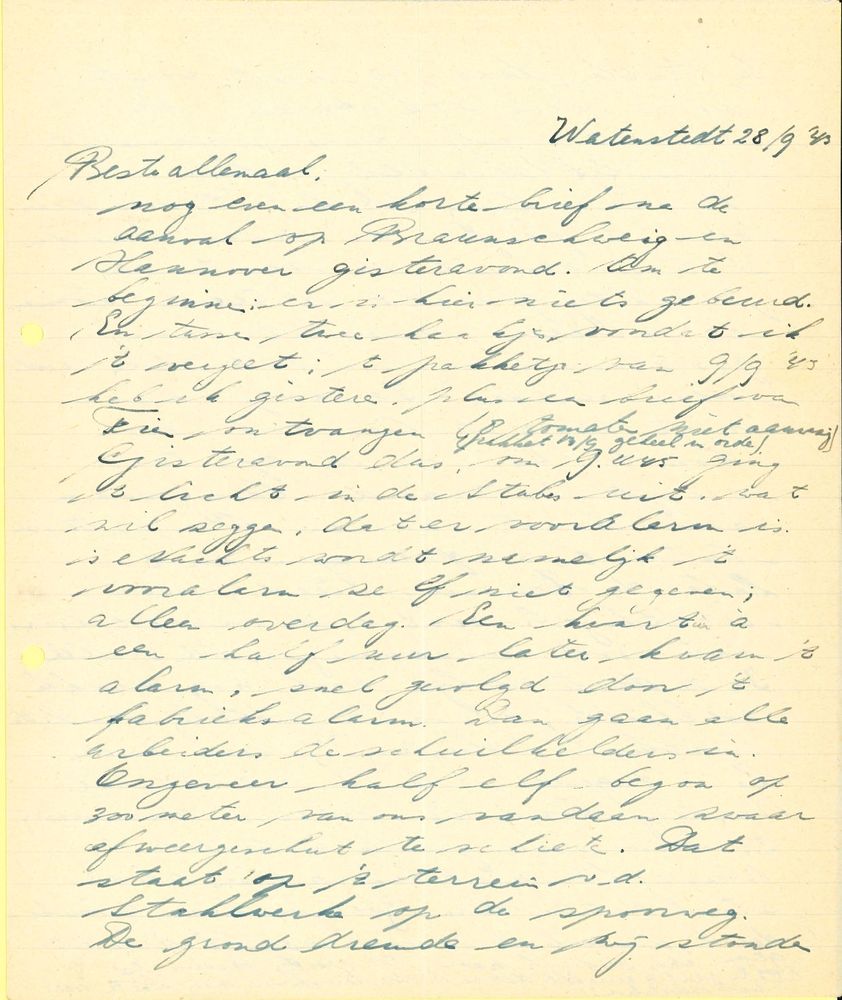 Watenstedt 28/9 '43
Beste allemaal,
nog even een korte brief na de
aanval op Braunschweig en
Hannover gisteravond. Om te
beginne: er is hier niets gebeurd.
En tusse twee haakjes, voordat ik
't vergeet; 't pakketje van 9/9 '43
heb ik gistere, plus een brief van
Fien ontvangen (tomate niet aanwezig)
(Pakket 10/9 geheel in orde)
Gisteravond dus, om 9.45 ging
't licht in de Stubes uit, wat
wil zegge, dat er voorAlarm is.
's Nachts wordt namelijk 't
vooralarm zelf niet gegeven;
alleen overdag. Een kwart à
een half uur later kwam 't
alarm, snel gevolgd door 't
fabrieksalarm. Dan gaan alle
arbeiders de schuilkelders in.
Ongeveer half elf begon op
300 meter van ons vandaan zwaar
afweergeschut te schiete. Dat
staat op 't terrein v.d.
Stahlwerke op de spoorweg.
De grond dreunde en wij stonde